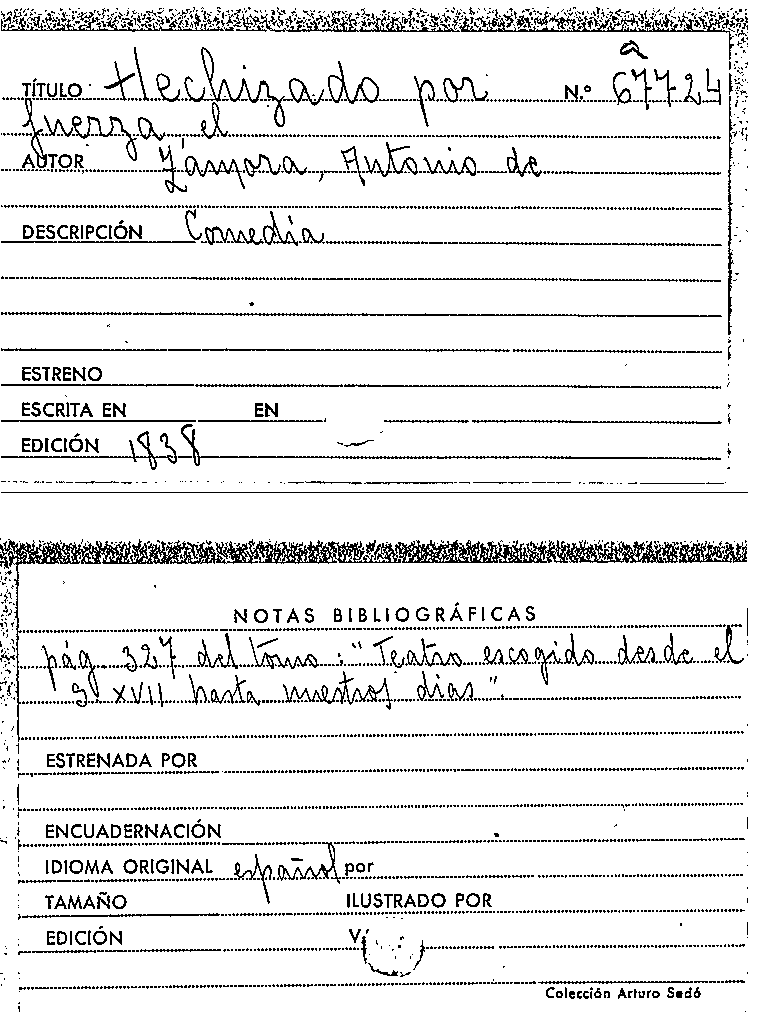 a
TÍTULO Hechizado por N.º 67724
fuerza, el
AUTOR Zámora, Antonio de
DESCRIPCIÓN Comedia
ESTRENO
ESCRITA EN EN
EDICIÓN 1838
NOTAS BIBLIOGRÁFICAS
pág. 327 del tomo: "Teatro escogido desde el
S. XVII hasta nuestros dias".
ESTRENADA POR
ENCUADERNACIÓN
IDIOMA ORIGINAL español por
TAMAÑO ILUSTRADO POR
EDICIÓN
Colección Arturo Sedó